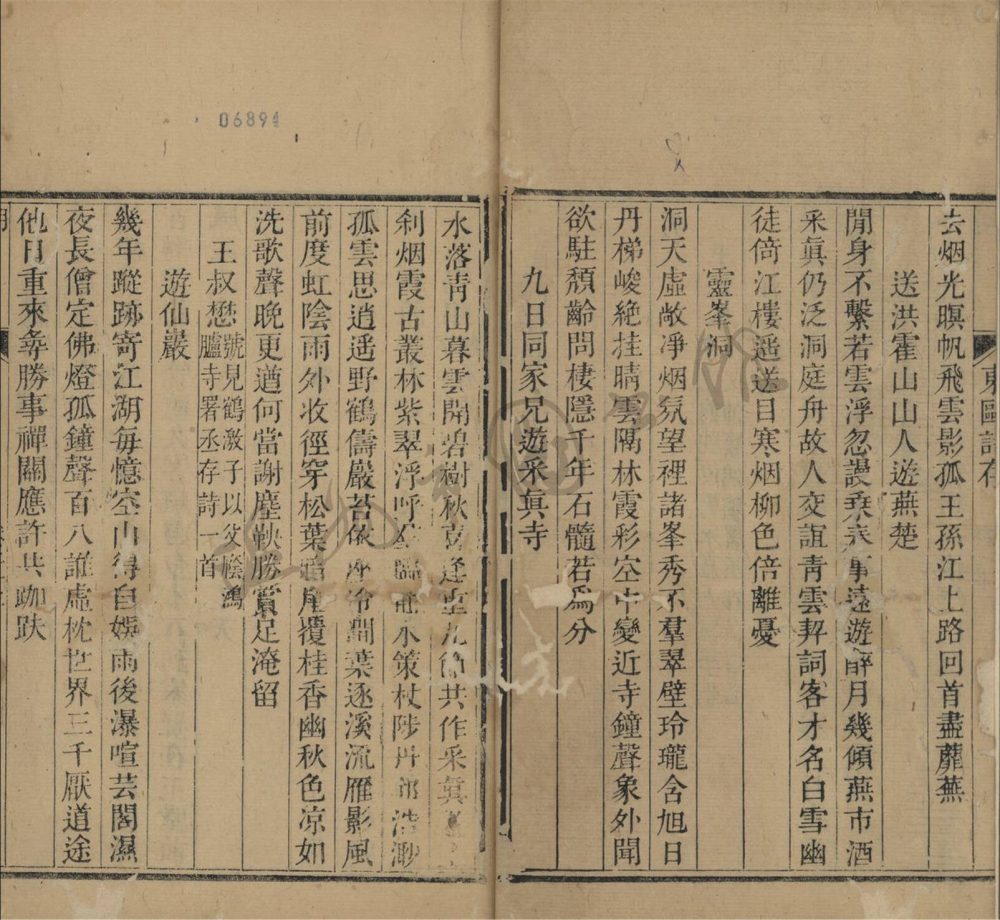 東甌詩存
去烟光暝帆飛雲影孤王孫江上路回首盡蘼蕪
送洪霍山山人遊燕楚
閒身不繫若雲浮忽謾乘事遠遊醉月幾傾燕市酒
采眞仍泛洞庭舟故人交誼靑雲契詞客才名白雪幽
徒倚江樓遥送目寒烟柳色倍離憂
靈峯洞
洞天虛敞凈烟氛望裡諸峯秀不羣翠壁玲瓏含旭日
丹梯峻絶挂晴雲隔林霞彩空中變近寺鐘聲象外聞
欲駐頹齡問棲隱千年石髓若爲分
九日同家兄遊采眞寺
水落靑山暮雲開碧樹秋喜逢重九節共作采眞
刹烟霞古叢林紫翠浮呼臨水策杖陟丹浩渺
孤雲思逍遥野鶴儔巖苔依冷澗葉逐溪流雁影風
前度虹陰雨外收徑穿松葉覆桂香幽秋色凉如
洗歌聲晚更遒何當謝塵鞅勝賞足淹留
王叔懋號見鶴激子以父廕鴻臚寺署丞存詩一首
遊仙巖
幾年蹤跡寄江湖每憶空山得自娛雨後瀑喧芸閣濕
夜長僧定佛燈孤鐘聲百八誰虛枕世界三千厭道途
他日重來尋勝事禪關應許共跏趺
06894